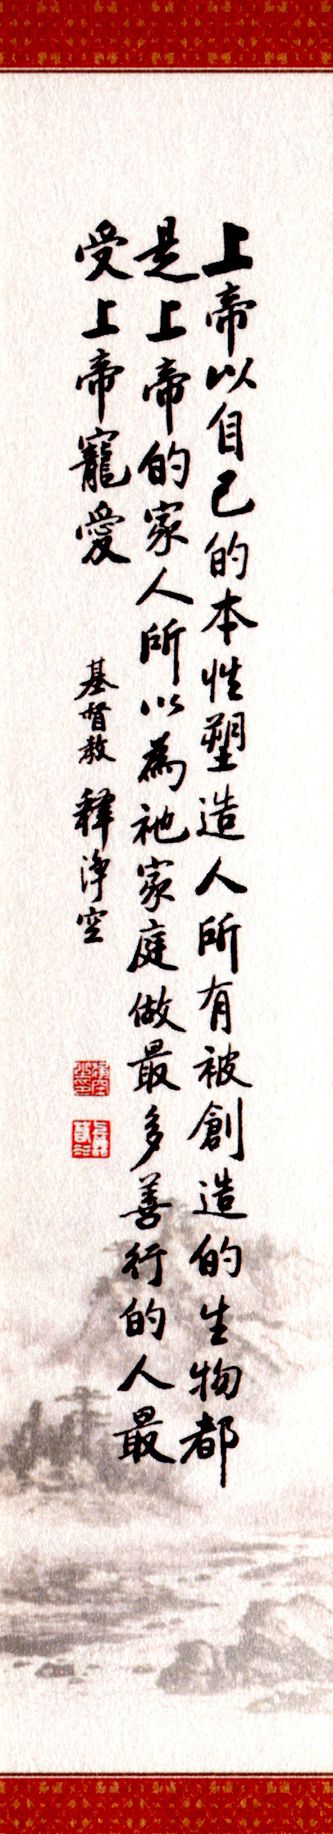 上帝以自己的本性塑造人所有被創造的生物都
是上帝的家人所以為祂家庭做最多善行的人最
受上帝寵愛
基督教 釋淨空